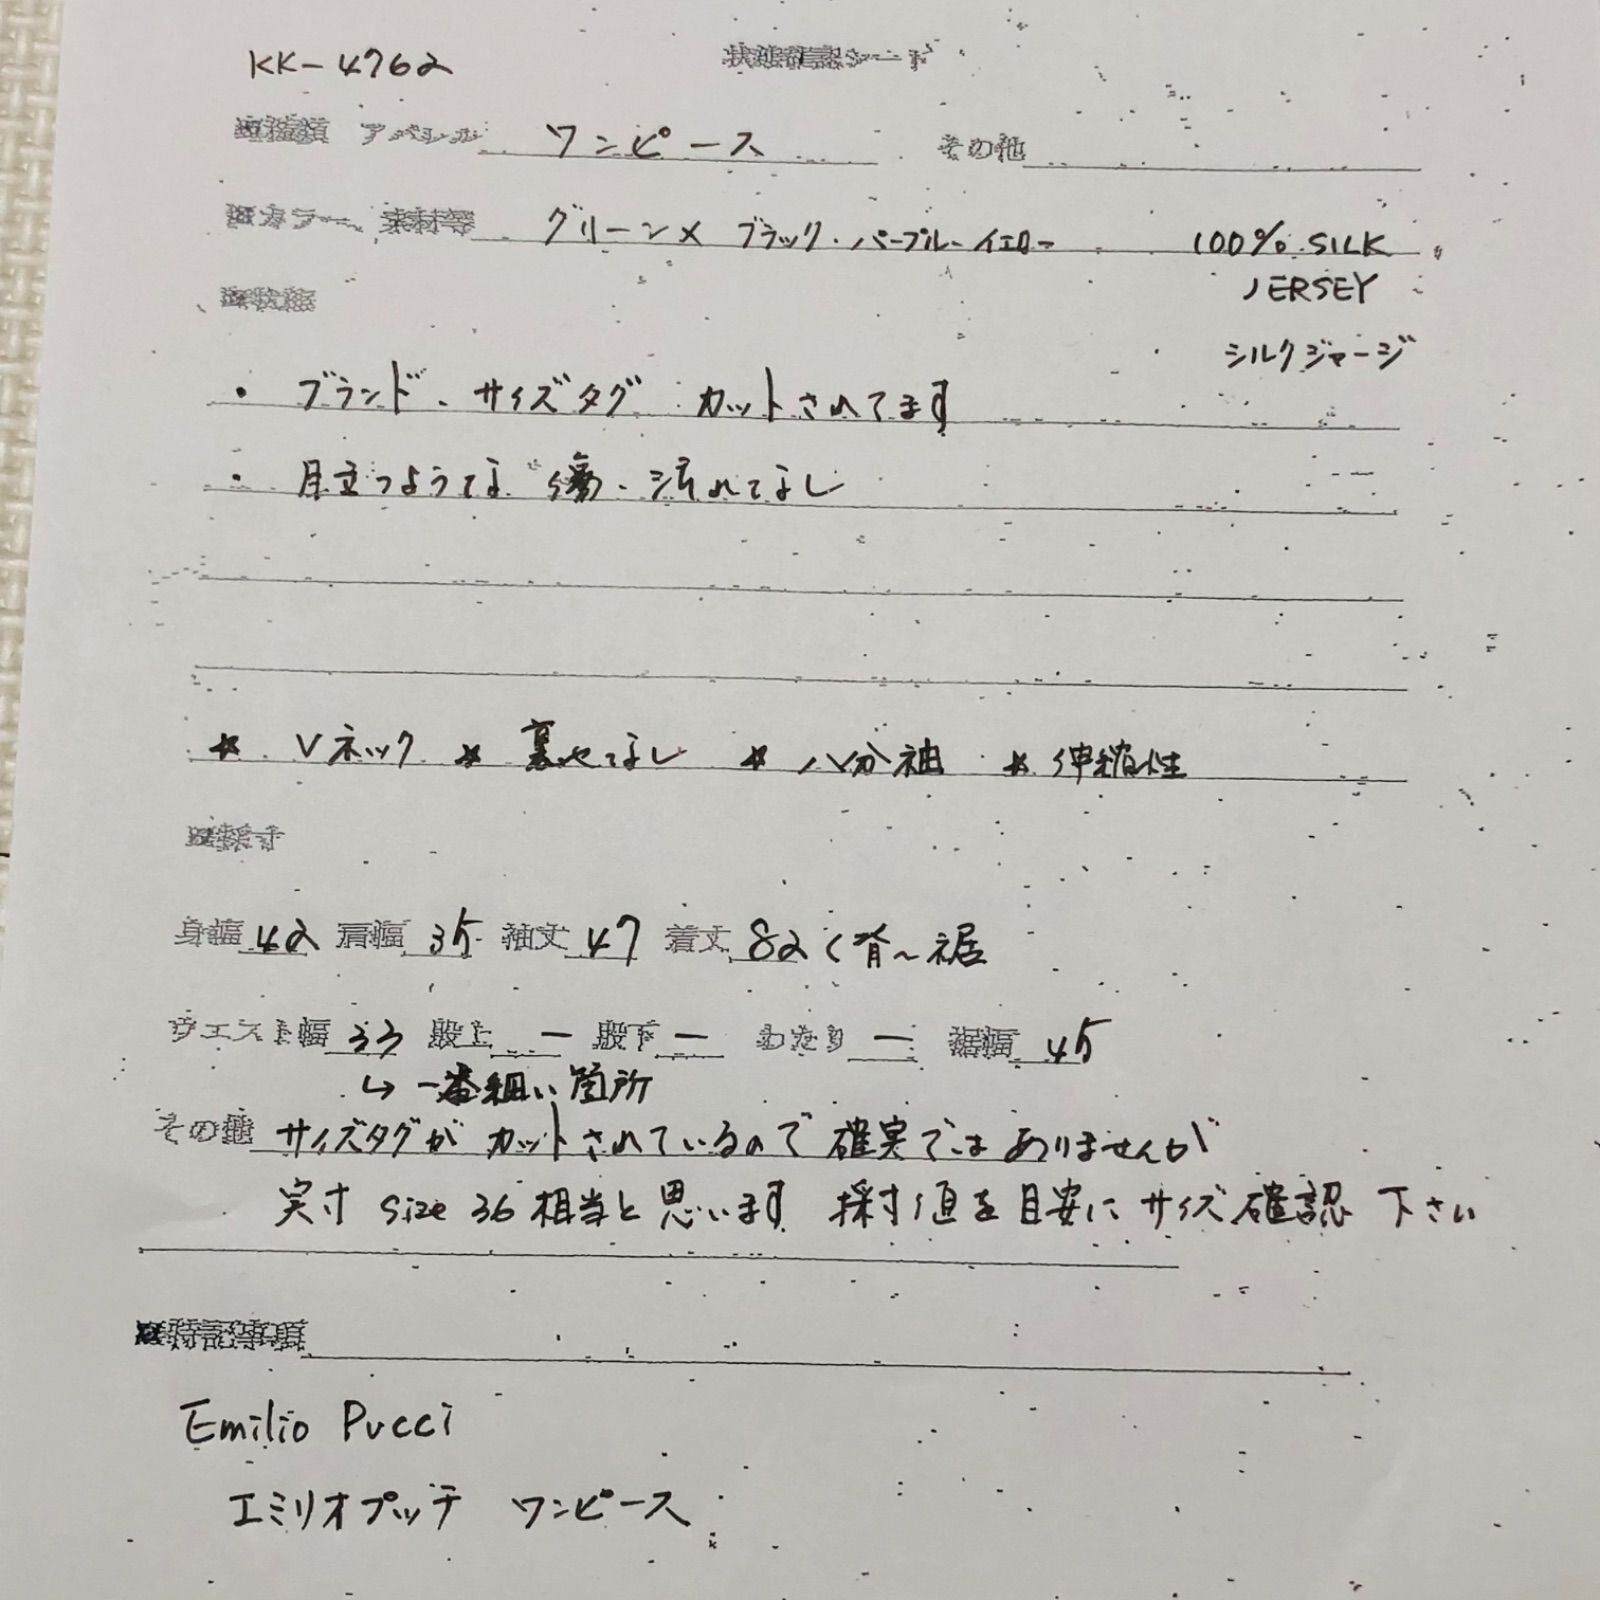 KK-4762 状態確認シート
■種類 アパレル ワンピース その他
■カラー、素材等 グリーン× ブラック・パープル・イエロー 100% SILK
JERSEY
■状態
シルクジャージ
・ ブランド、サイズタグ カットされてます
・ 目立つような 傷、汚れなし
★ Vネック ★ 裏地なし ★ 八分袖 ★ 伸縮性
■採寸
身幅 42 肩幅 35 袖丈 47 着丈 82 (背〜裾
ウエスト幅 33 股上 ー 股下 ー わたり ー 裾幅 45
↳ 一番細い箇所
その他 サイズタグが カットされているので 確実ではありませんが
実寸 size 36 相当と思います 採寸値を目安に サイズ確認 下さい
■特記事項
Emilio Pucci
エミリオプッチ ワンピース